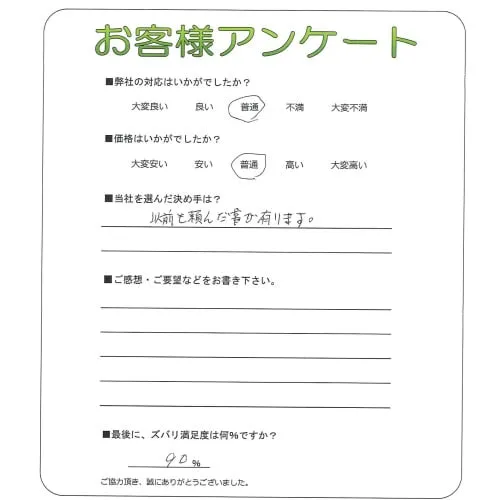 お客様アンケート
■弊社の対応はいかがでしたか？
大変良い 良い 普通 不満 大変不満
■価格はいかがでしたか？
大変安い 安い 普通 高い 大変高い
■当社を選んだ決め手は？
以前も頼んだ事が有ります。
■ご感想・ご要望などをお書き下さい。
■最後に、ズバリ満足度は何%ですか？
90 %
ご協力頂き、誠にありがとうございました。